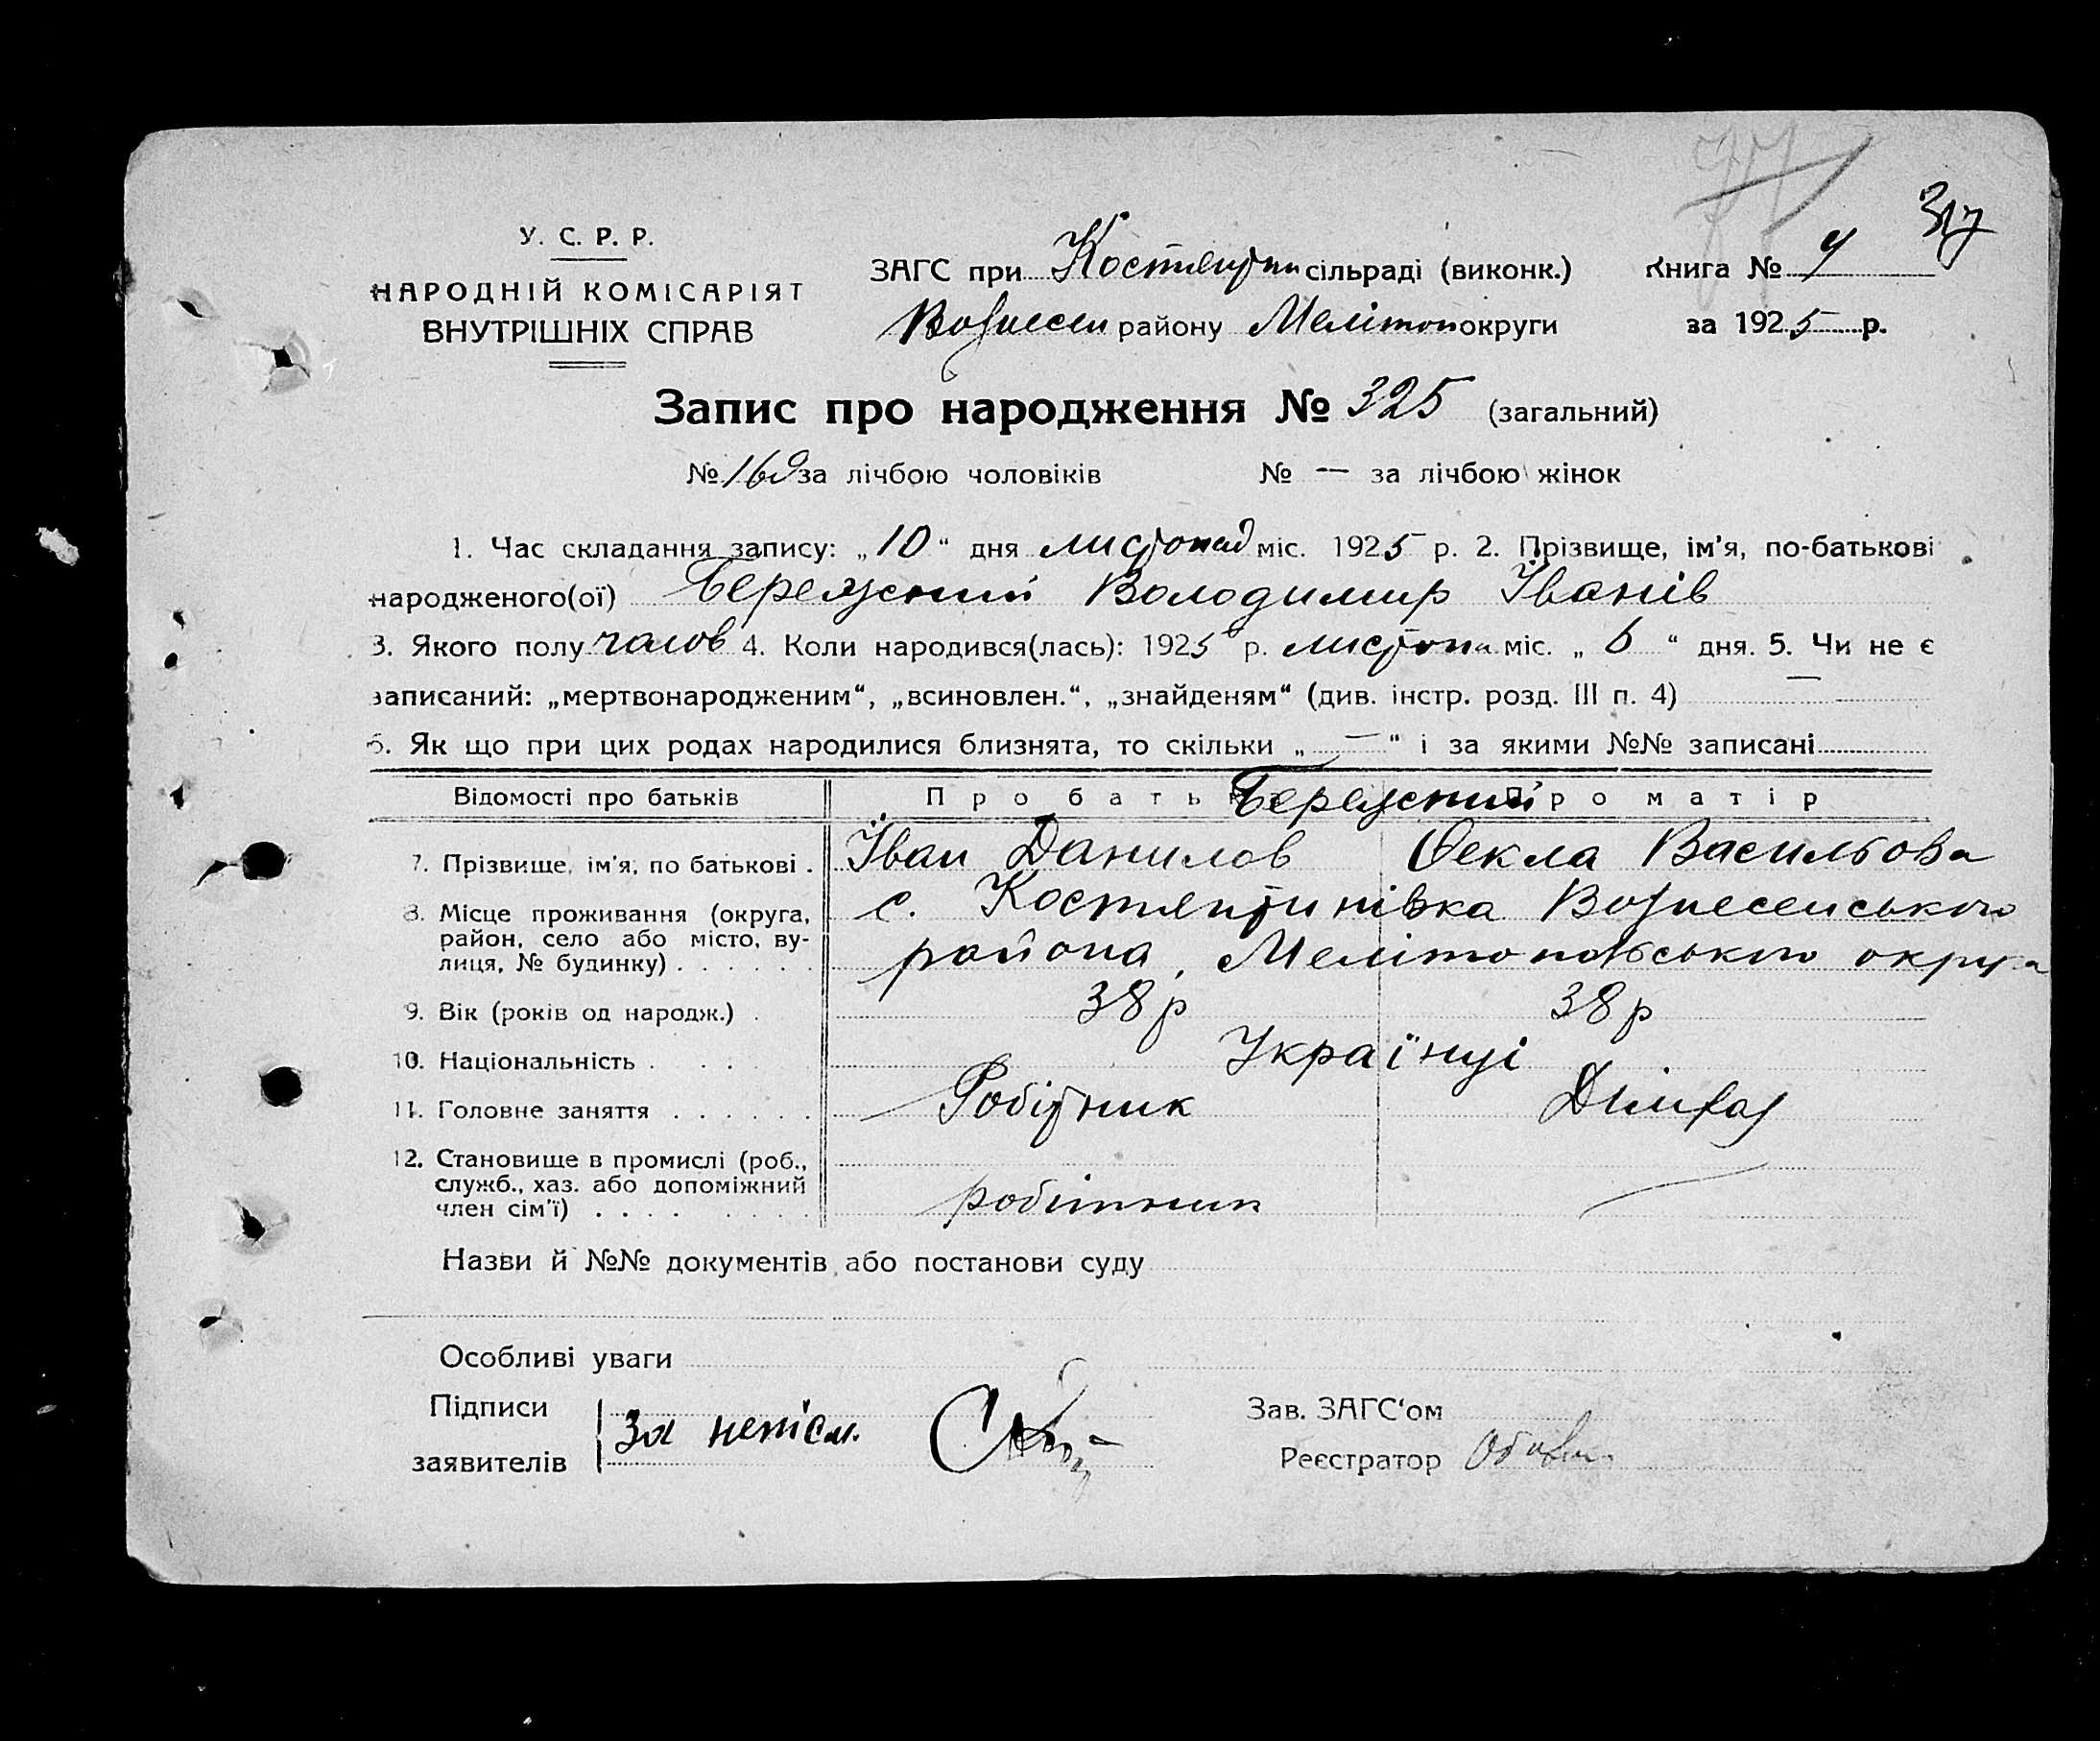 77
317
У. С. Р. Р.
НАРОДНІЙ КОМІСАРІЯТ
ВНУТРІШНІХ СПРАВ
ЗАГС при Костянтин сільраді (виконк.) Книга № 4
Вознесен району Мелітоп округи за 1925 р.
Запис про народження № 325 (загальний)
№ 160 за лічбою чоловіків № — за лічбою жінок
1. Час складання запису: „10“ дня листопад міс. 1925 р. 2. Прізвище, ім'я, по-батькові
народженого(ої) Бережний Володимир Іванів
3. Якого полу чолов 4. Коли народився(лась): 1925 р. листопа міс. „ 6 “ дня. 5. Чи не є
записаний: „мертвонародженим“, „всиновлен.“, „знайденям“ (див. інстр. розд. III п. 4) —
6. Як що при цих родах народилися близнята, то скільки „ — “ і за якими №№ записані
Відомості про батьків Про батька Бережний Про матір
7. Прізвище, ім'я, по батькові . Іван Данилов Фекла Васильова
8. Місце проживання (округа, с. Костянтинівка Вознесенського
район, село або місто, вулиця, № будинку) . . . . . . района, Мелітопольського округа
9. Вік (років од народж.) . 38 р 38 р
10. Національність . . . Українці
11. Головне заняття . . . . . . Робітник
12. Становище в промислі (роб.,
служб., хаз. або допоміжний
член сім'ї) . . . . . . . . робітник —
Назви й №№ документів або постанови суду
Особливі уваги
Підписи За непісм. Зав. ЗАГС'ом
заявителів Реєстратор